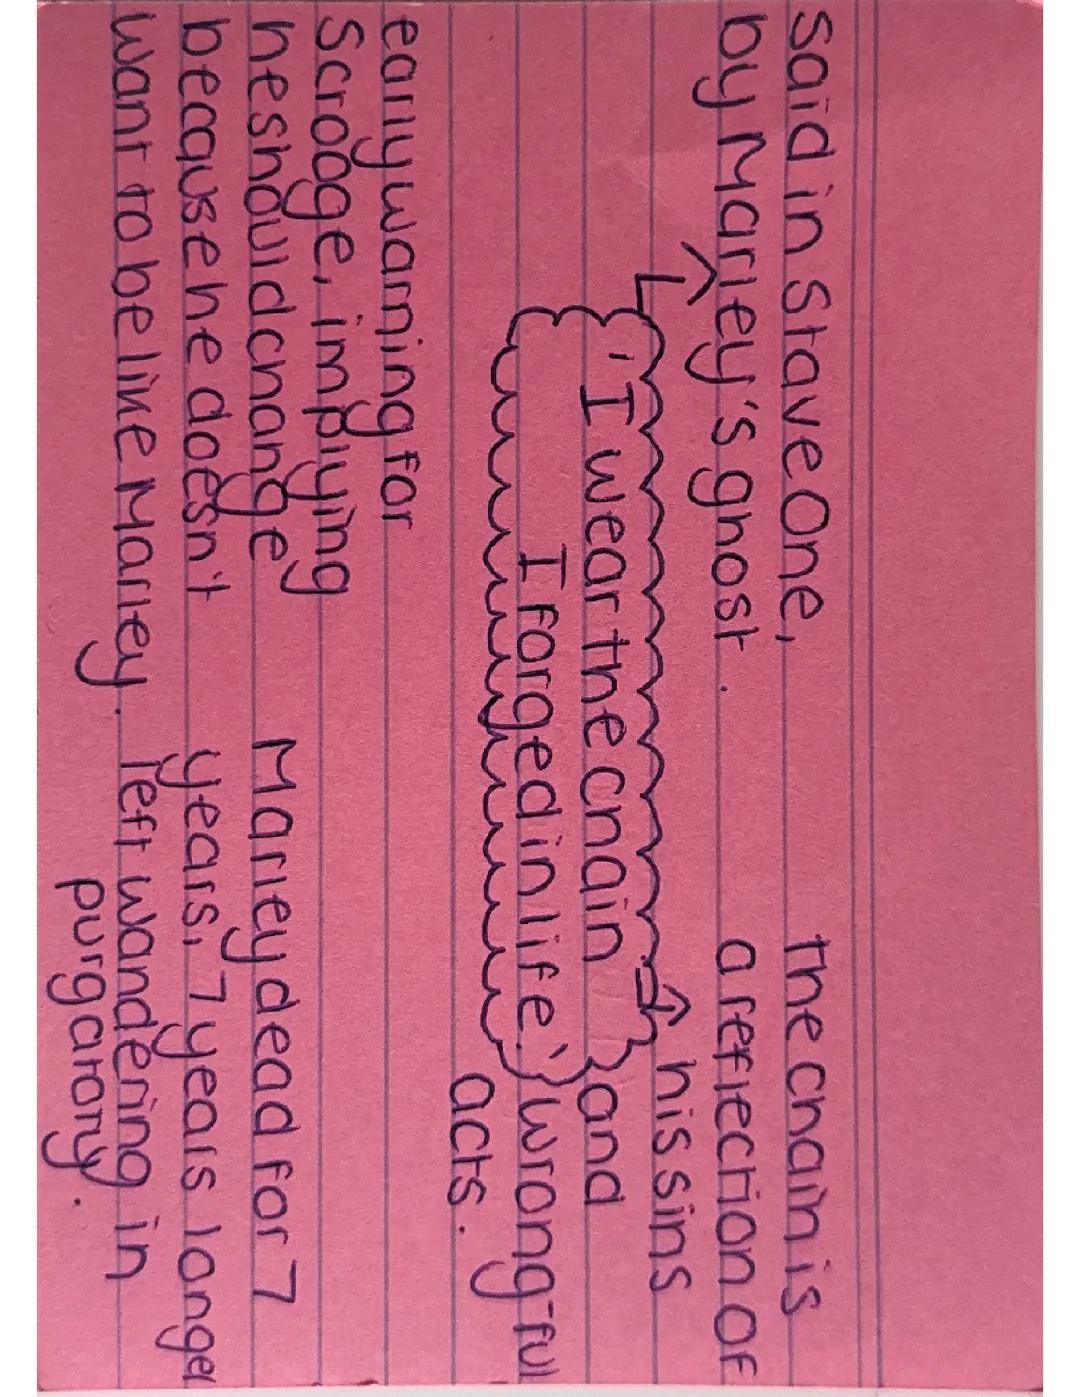 Said in Stave One,
by Marley's ghost.
the chain is
a reflection of
his sins
and
wrong-ful
acts.
'I wear the chain
I forged in life.'
early warning for
Scrooge, implying
he should change
because he doesn't
want to be like Marley.
Marley dead for 7
years, 7 years longer
left wandering in
purgarory.